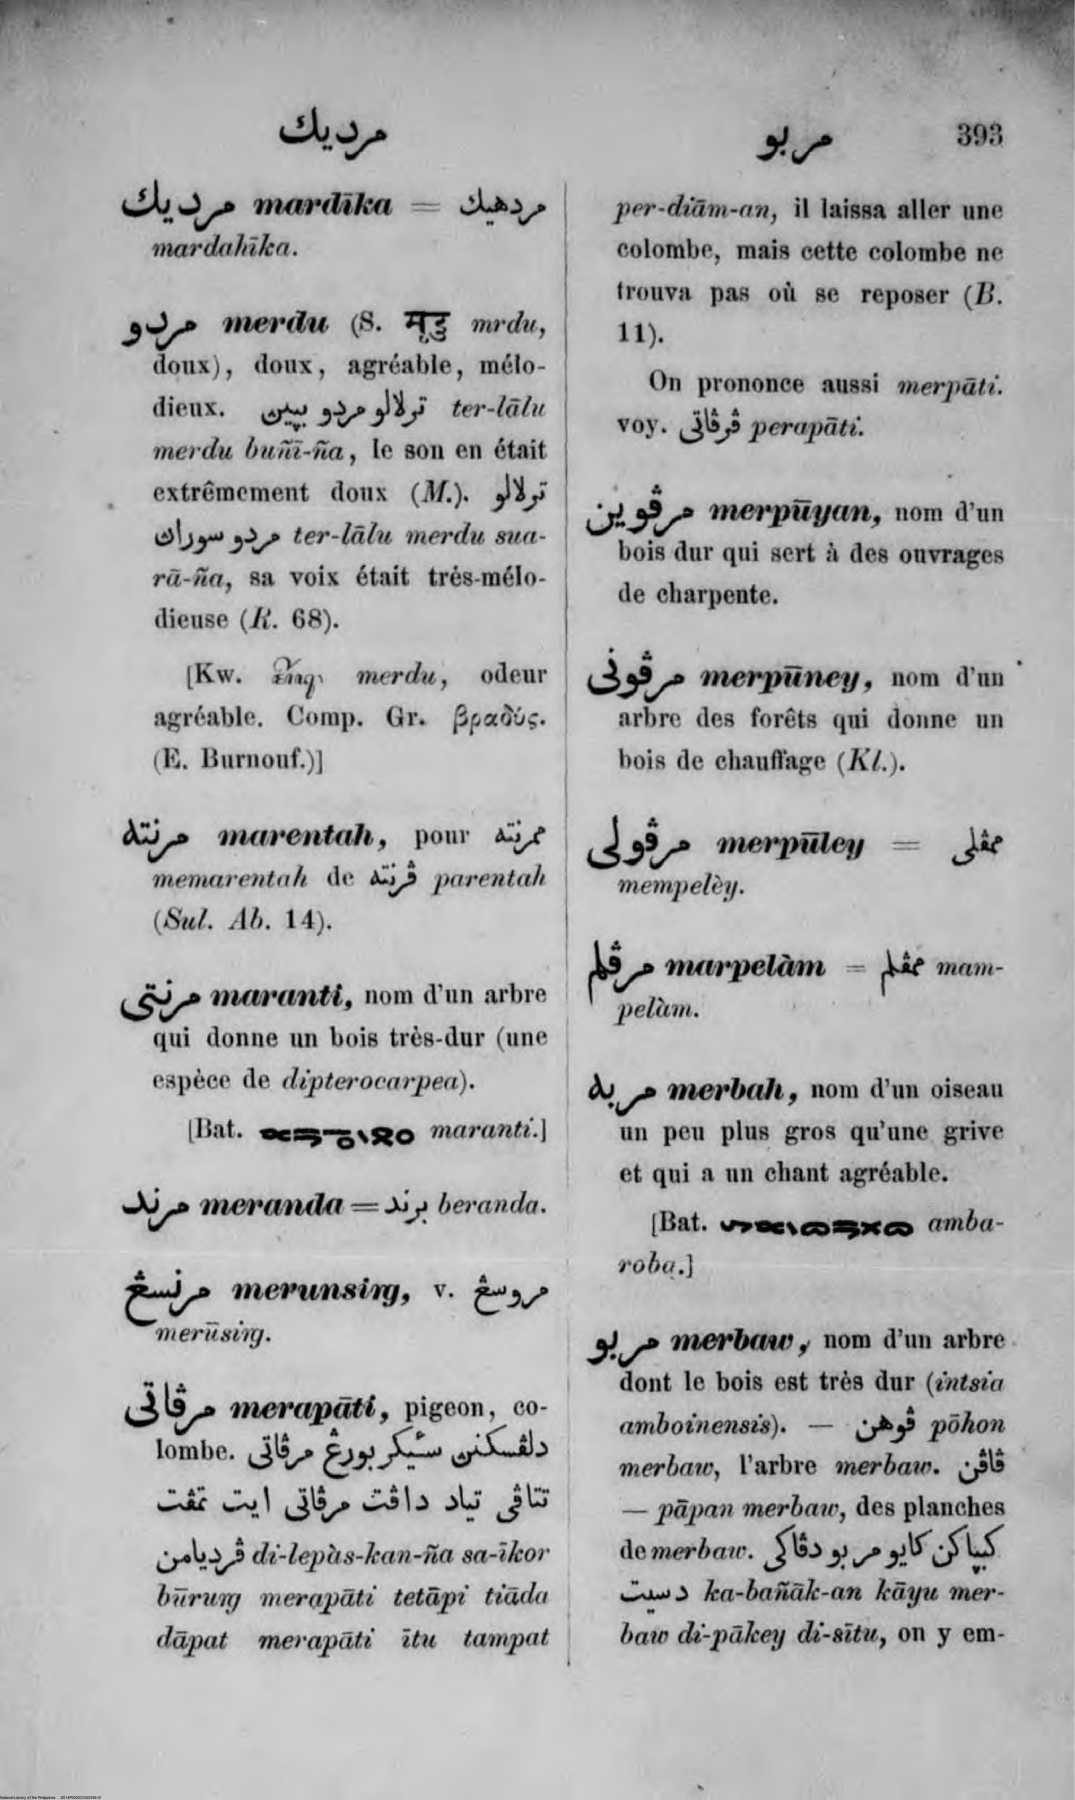 مرديك
مربو
393
مرديك mardīka = مردهيك
mardahīka.
مردو merdu (S. मृदु mrdu,
doux), doux, agréable, mélo-
dieux. ترلالو مردو ter-lālu
merdu buñī-ña, le son en était
extrêmement doux (M.). ترلالو
مردو سوراڽ ter-lālu merdu sua-
rā-ña, sa voix était très-mélo-
dieuse (R. 68).
[Kw. merdu, odeur
agréable. Comp. Gr. βραδύς.
(E. Burnouf.)]
مرنته marentah, pour ممرنته
memarentah de ڤرنته parentah
(Sul. Ab. 14).
مرنتي maranti, nom d'un arbre
qui donne un bois très-dur (une
espèce de dipterocarpea).
[Bat. maranti.]
مرند meranda = برند beranda.
مرنسڠ merunsirg, v. مروسڠ
merūsirg.
مرڤاتي merapāti, pigeon, co-
lombe. دلڤسكنن سئيكر بورڠ مرڤاتي
تتاڤي تياد داڤت مرڤاتي ايت تمڤت
ڤرديامن di-lepàs-kan-ña sa-īkor
būrurg merapāti tetāpi tiāda
dāpat merapāti ītu tampat
per-diām-an, il laissa aller une
colombe, mais cette colombe ne
trouva pas où se reposer (B.
11).
On prononce aussi merpāti.
voy. ڤرڤاتي perapāti.
مرڤوين merpūyan, nom d'un
bois dur qui sert à des ouvrages
de charpente.
مرڤوني merpūney, nom d'un
arbre des forêts qui donne un
bois de chauffage (Kl.).
مرڤولي merpūley = ممڤلي
mempelèy.
مرڤلم marpelàm = ممڤلم mam-
pelàm.
مربه merbah, nom d'un oiseau
un peu plus gros qu'une grive
et qui a un chant agréable.
[Bat. amba-
roba.]
مربو merbaw, nom d'un arbre
dont le bois est très dur (intsia
amboinensis). — ڤوهن pōhon
merbaw, l'arbre merbaw. ڤاڤن
— pāpan merbaw, des planches
de merbaw. كبڽاكن كايو مربو دڤاكي
دسيت ka-bañāk-an kāyu mer-
baw di-pākey di-sītu, on y em-